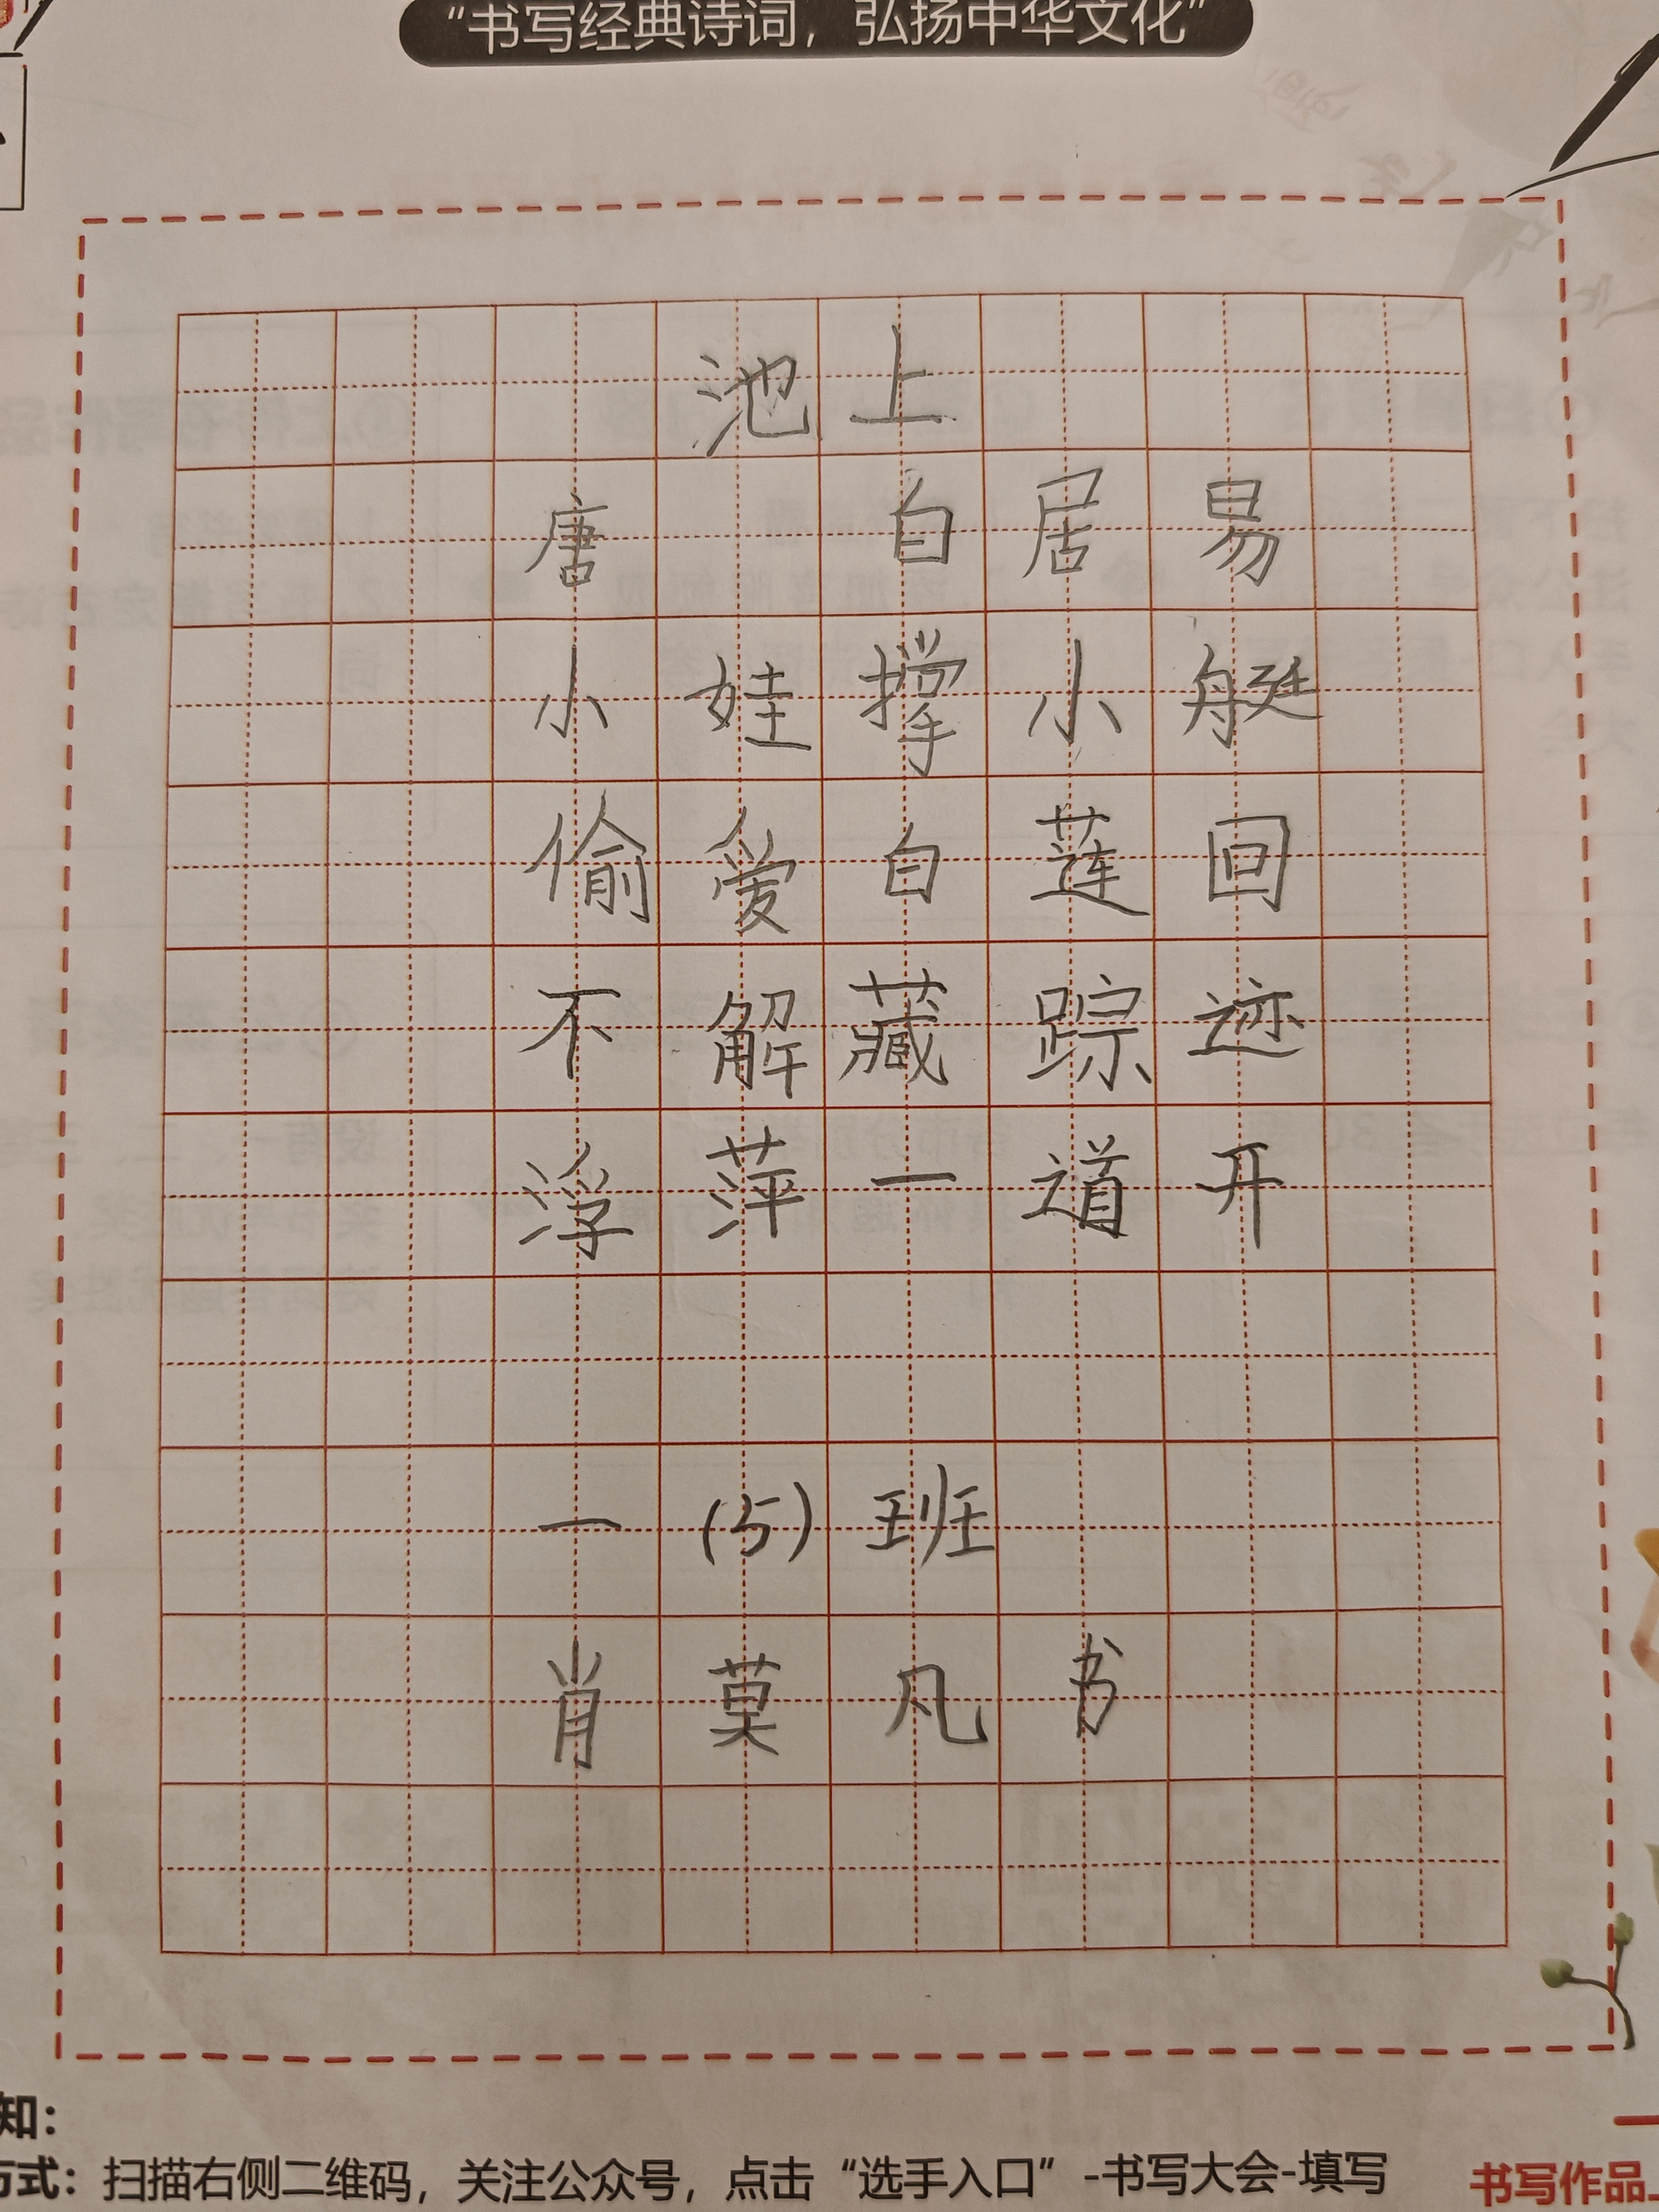 “书写经典诗词，弘扬中华文化”
池上
唐 白居易
小娃撑小艇
偷爱白莲回
不解藏踪迹
浮萍一道开
一(5)班
肖莫凡书
知：
方式：扫描右侧二维码，关注公众号，点击“选手入口”-书写大会-填写
书写作品